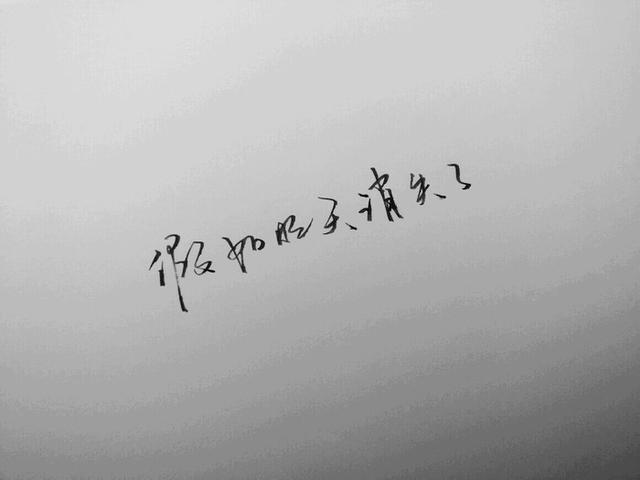 假如昨天消失了